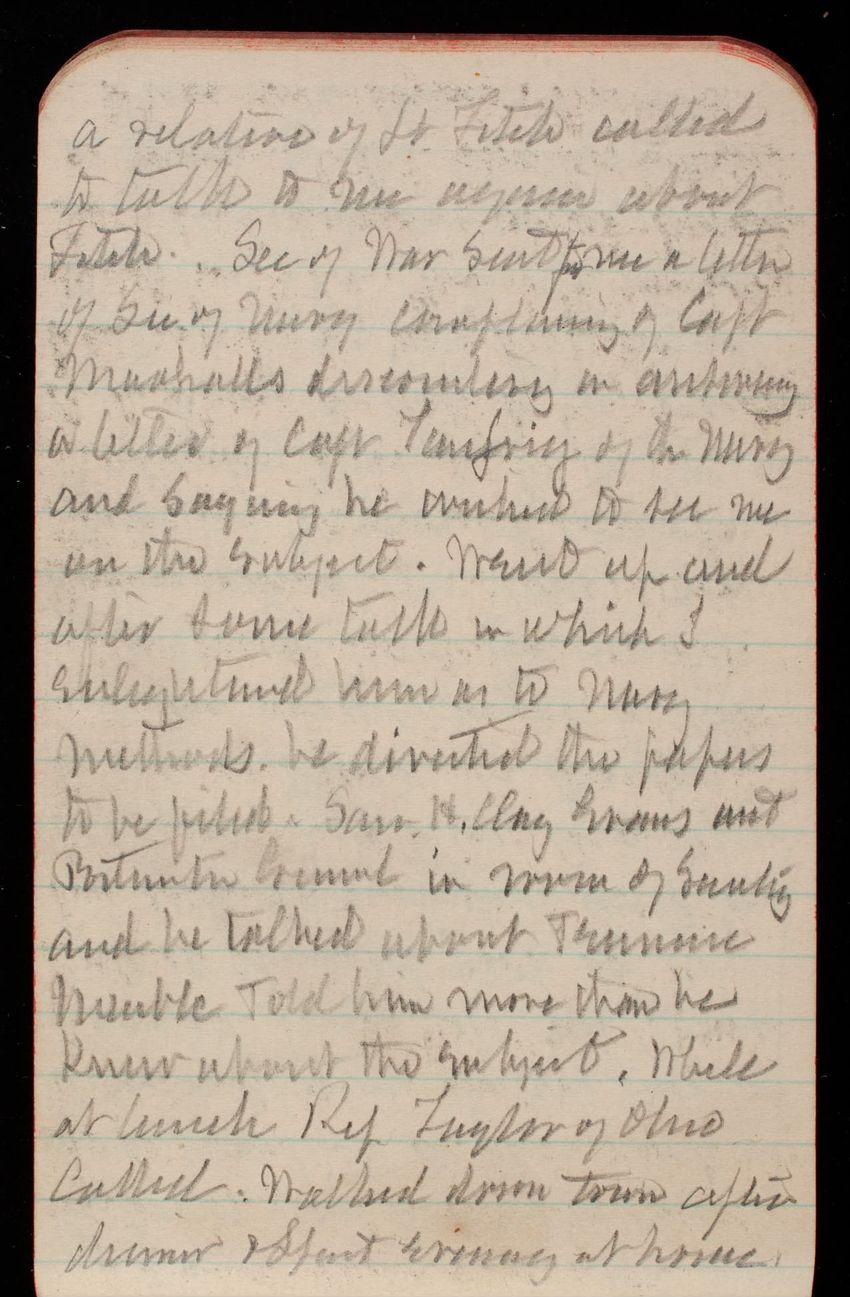 a relative of Lt. Fitch called
to talk to me again about
Fitch. Sec of War sent for me a letter
of Sec. of Navy complaining of Capt
Marshalls discourtesy in answering
a letter of Capt of the Navy
and saying he wished to see me
on the subject. Went up and
after some talk in which I
enlightened him as to Navy
methods. he directed the papers
to be filed. Saw H. Clay Evans asst
Postmaster General in room of Secty
and he talked about Tennessee
Marble Told him more than he
knew about the subject. While
at lunch Rep Taylor of Ohio
Called. Walked down town after
dinner & Spent evening at home